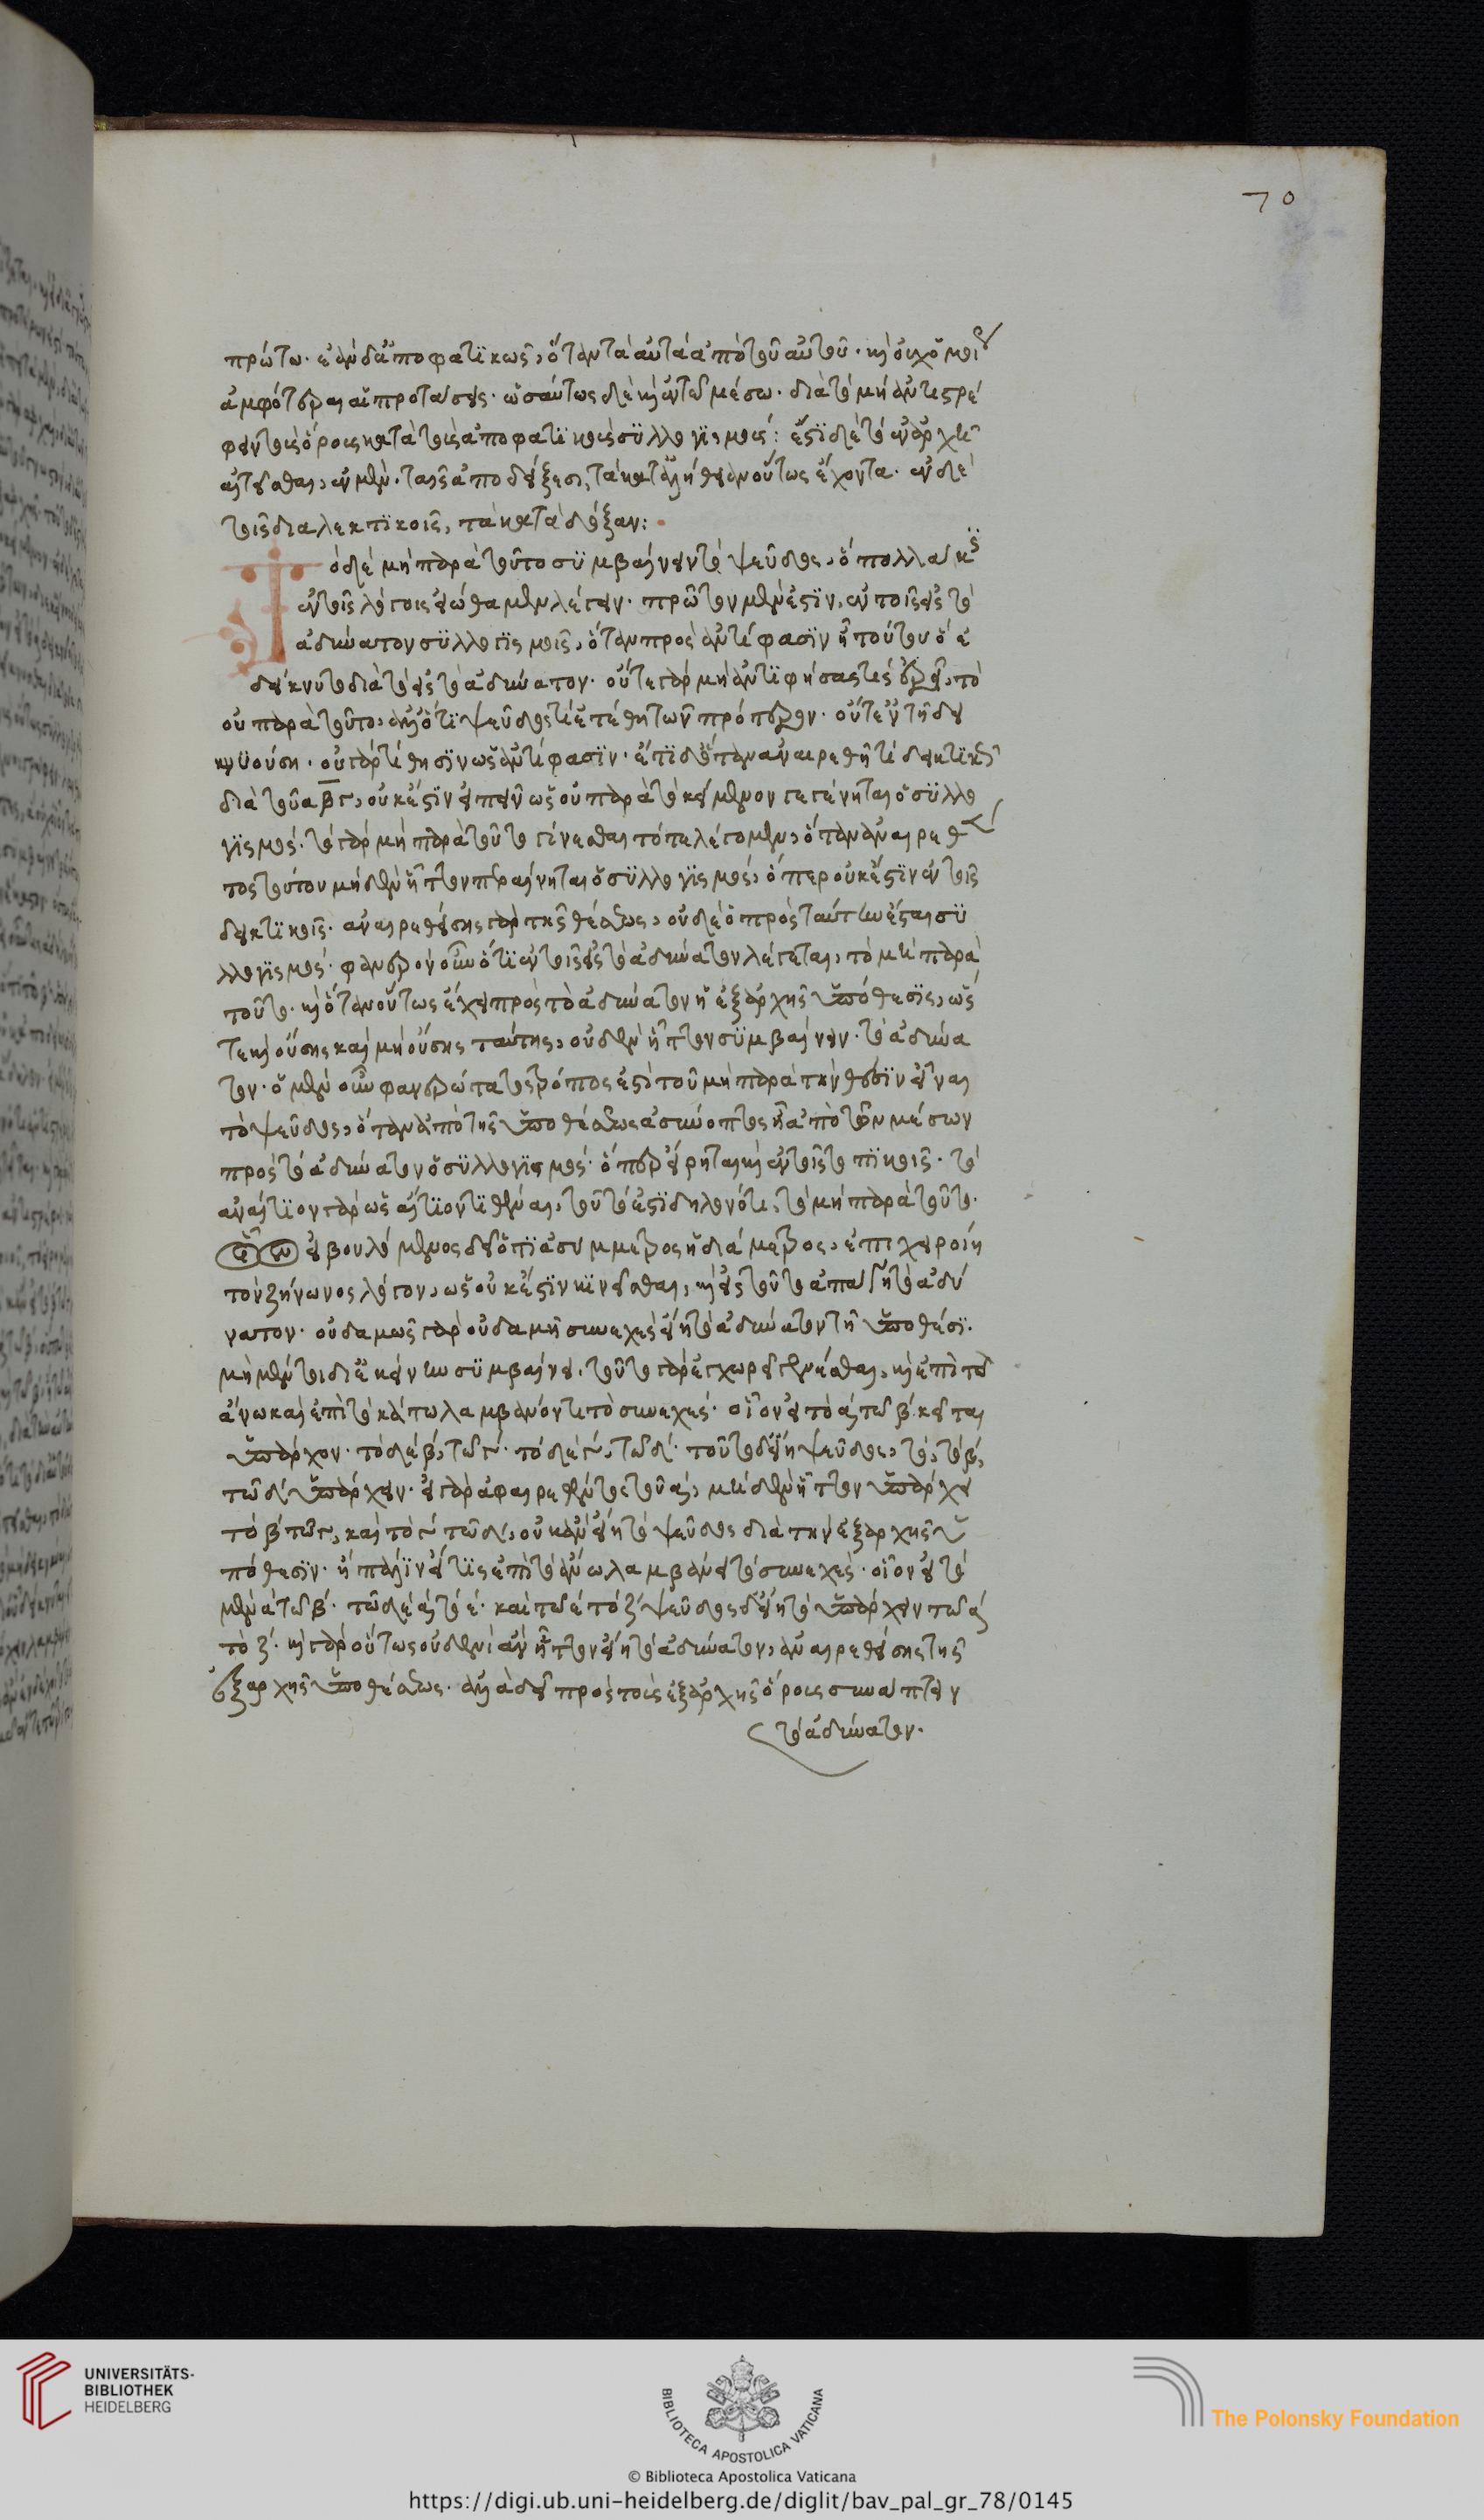 70
πρώτω· ἐὰν δ' ἀποφατικῶς, ὅταν τὰ αὐτὰ ἀπὸ τοῦ αὐτοῦ· καὶ οὐχ ὅμοι
ἀμφότεραι αἱ προτάσεις· ὡσαύτως δὲ καὶ ἐν τῶ μέσω· διὰ τὸ μὴ ἀντιστρέ
φειν τοὺς ὅρους κατὰ τοὺς ἀποφατικοὺς συλλογισμούς: ἔστι δὲ τὸ ἐν ἀρχῆ
αἰτεῖσθαι, ἐν μὲν ταῖς ἀποδείξεσι, τὰ κατ' ἀλήθειαν οὕτως ἔχοντα· ἐν δὲ
τοῖς διαλεκτικοῖς, τὰ κατὰ δόξαν:
Τὸ δὲ μὴ παρὰ τοῦτο συμβαίνειν τὸ ψεῦδος, ὃ πολλάκις
ἐν τοῖς λόγοις εἰώθαμεν λέγειν· πρῶτον μέν ἐστιν, ἐν τοῖς εἰς τὸ
ἀδύνατον συλλογισμοῖς, ὅταν πρὸς ἀντίφασιν ἦ τούτου ὃ ἐ
δείκνυτο διὰ τὸ εἰς τὸ ἀδύνατον· οὔτε γὰρ μὴ ἀντιφήσας τὶς ἐρεῖ, τὸ
οὐ παρὰ τοῦτο, ἀλλ' ὅτι ψεῦδός τι ἐτέθη τῶν πρότερον· οὔτ' ἐν τῆ δει
κνυούση· οὐ γὰρ τίθησιν ὡς ἀντίφασιν· ἔτι δ' ὅταν ἀναιρεθῆ τι δεικτικῶς
διὰ τοῦ α β γ, οὐκ ἔστιν εἰπεῖν ὡς οὐ παρὰ τὸ κείμενον γεγένηται ὁ συλλο
γισμός· τὸ γὰρ μὴ παρὰ τοῦτο γίνεσθαι τότε λέγομεν, ὅταν ἀναιρεθέν
τος τούτου μηδὲν ἧττον περαίνηται ὁ συλλογισμός, ὅπερ οὐκ ἔστιν ἐν τοῖς
δεικτικοῖς· ἀναιρεθείσης γὰρ τῆς θέσεως, οὐδὲ ὁ πρὸς ταύτην ἔσται συ
λλογισμός· φανερὸν οὖν ὅτι ἐν τοῖς εἰς τὸ ἀδύνατον λέγεται, τὸ μὴ παρὰ
τοῦτο· καὶ ὅταν οὕτως ἔχει πρὸς τὸ ἀδύνατον ἡ ἐξ ἀρχῆς ὑπόθεσις, ὥσ
τε καὶ οὔσης καὶ μὴ οὔσης ταύτης, οὐδὲν ἧττον συμβαίνειν τὸ ἀδύνα
τον· ὁ μὲν οὖν φανερώτατος τρόπος ἐστὶ τοῦ μὴ παρὰ τὴν θέσιν εἶναι
τὸ ψεῦδος, ὅταν ἀπὸ τῆς ὑποθέσεως ἀσύναπτος ἦ ἀπὸ τῶν μέσων
πρὸς τὸ ἀδύνατον ὁ συλλογισμός· ὅπερ εἴρηται καὶ ἐν τοῖς τοπικοῖς· τὸ
ἀναίτιον γὰρ ὡς αἴτιον τιθέναι, τοῦτό ἐστι δηλονότι, τὸ μὴ παρὰ τοῦτο·
οἷον εἰ βουλόμενος δεῖξ ὅτι ἀσύμμετρος ἡ διάμετρος, ἐπιχειροίη
τὸν ζήνωνος λόγον, ὡς οὐκ ἔστιν κινεῖσθαι, καὶ εἰς τοῦτο ἀπάγοι τὸ ἀδύ
νατον· οὐδαμῶς γὰρ οὐδαμῆ συνεχές ἐστι τὸ ἀδύνατον τῆ ὑποθέσει·
τοῦτο γὰρ ἐγχωρεῖ γενέσθαι, καὶ ἐπὶ τὸ
ἄνω καὶ ἐπὶ τὸ κάτω λαμβάνοντι τὸ συνεχές· οἷον εἰ τὸ α τῶ β κεῖται
ὑπάρχον· τὸ δὲ β, τῶ γ· τὸ δὲ γ, τῶ δ· τοῦτο δ' εἴη ψεῦδος, τὸ, τὸ β,
τῶ δ ὑπάρχειν· εἰ γὰρ ἀφαιρεθέντος τοῦ α, μηδὲν ἧττον ὑπάρχει
τὸ β τῶ γ, καὶ τὸ γ τῶ δ, οὐκ ἂν εἴη τὸ ψεῦδος διὰ τὴν ἐξ ἀρχῆς ὑ
πόθεσιν· ἢ πάλιν εἴ τις ἐπὶ τὸ ἄνω λαμβάνει τὸ συνεχές· οἷον εἰ τὸ
μὲν α τῶ β· τῶ δὲ α τὸ ε· καὶ τῶ ε τὸ ζ· ψεῦδος δ' εἴη τὸ ὑπάρχειν τῶ α
τὸ ζ· καὶ γὰρ οὕτως οὐδὲν ἂν ἧττον εἴη τὸ ἀδύνατον, ἀναιρεθείσης τῆς
ἐξ ἀρχῆς ὑποθέσεως· ἀλλὰ δεῖ πρὸς τοὺς ἐξ ἀρχῆς ὅρους συνάπτειν
τὸ ἀδύνατον·
UNIVERSITÄTS-
BIBLIOTHEK
HEIDELBERG
BIBLIOTECA APOSTOLICA VATICANA
The Polonsky Foundation
© Biblioteca Apostolica Vaticana
https://digi.ub.uni-heidelberg.de/diglit/bav_pal_gr_78/0145